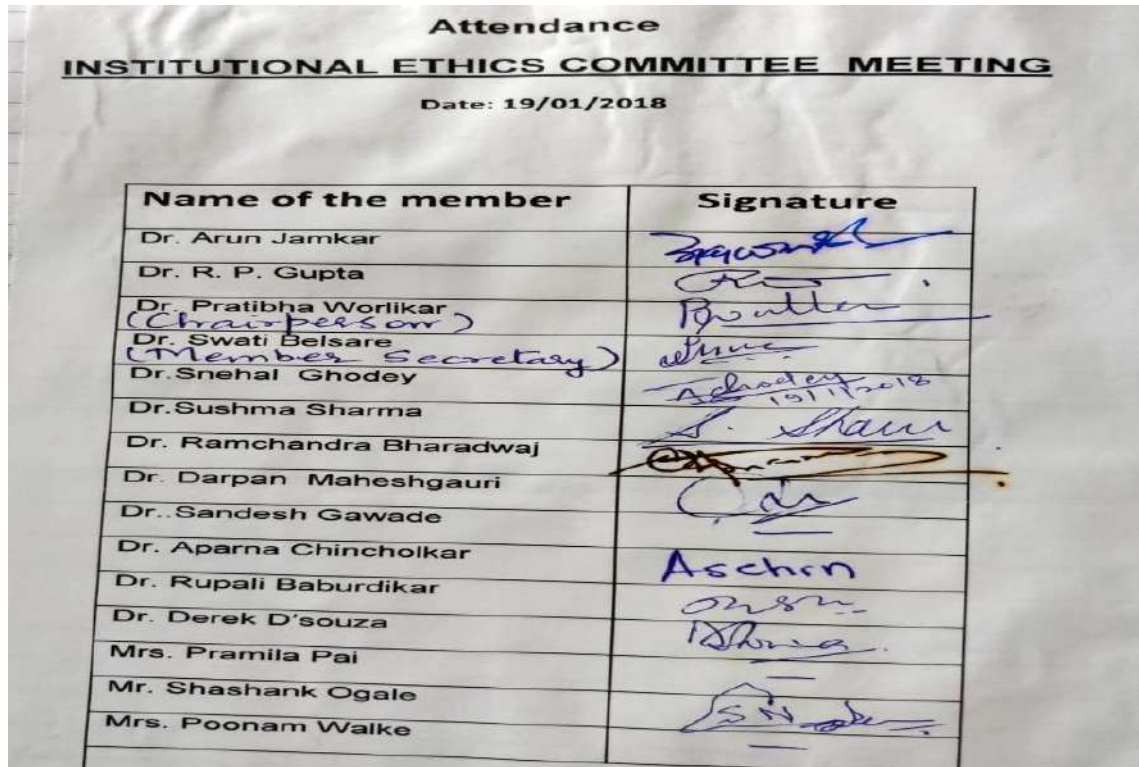 Attendance
INSTITUTIONAL ETHICS COMMITTEE MEETING
Date: 19/01/2018
Name of the member Signature
Dr. Arun Jamkar
Dr. R. P. Gupta
Dr. Pratibha Worlikar
(Chairperson)
Dr. Swati Belsare
(Member Secretary)
Dr.Snehal Ghodey
19/1/2018
Dr.Sushma Sharma S.
Dr. Ramchandra Bharadwaj
Dr. Darpan Maheshgauri
Dr..Sandesh Gawade —
Dr. Aparna Chincholkar
Dr. Rupali Baburdikar
Dr. Derek D'souza
Mrs. Pramila Pai —
Mr. Shashank Ogale
Mrs. Poonam Walke —